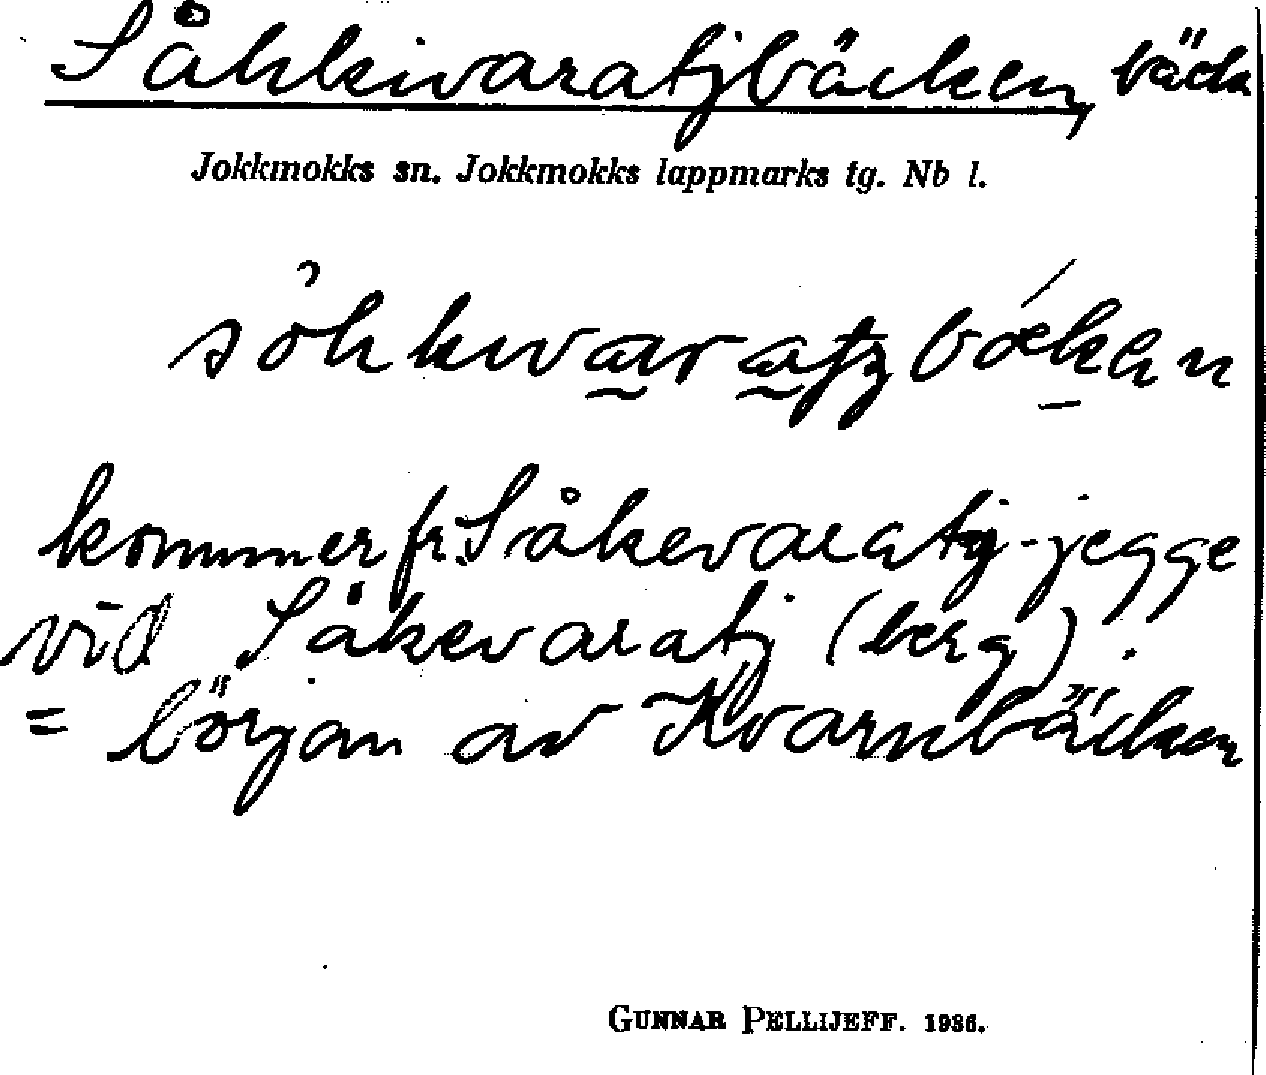 Såkkivaratjbäcken, bäck
Jokkmokks sn. Jokkmokks lappmarks tg. Nb l.
kommer fr. Såkevaratj-jegge
vid Såkevaratj (berg).
= början av Kvarnbäcken
GUNNAR PELLIJEFF. 1936.